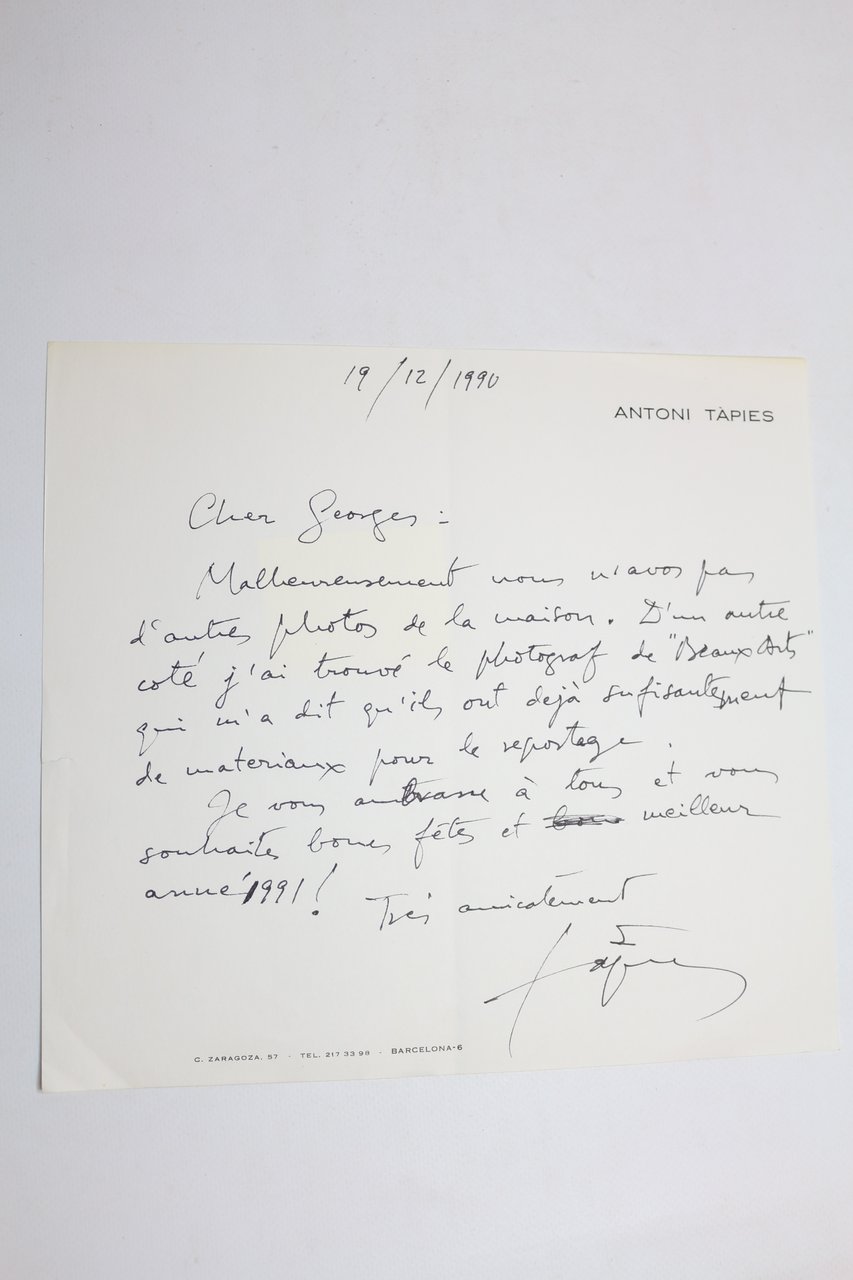 19/12/1990
ANTONI TÀPIES
Cher Georges :
Malheureusement nous n'avos pas
d'autres photos de la maison. D'un autre
coté j'ai trouvé le photograf de "Beaux Arts"
qui m'a dit qu'ils ont dejà sufisantement
de materiaux pour le reportage.
Je vous à tous et vous
souhaites bones fêtes et meilleur
anné 1991!
Tres amicalement
Tàpies
C. ZARAGOZA, 57 - TEL. 217 33 98 - BARCELONA-6